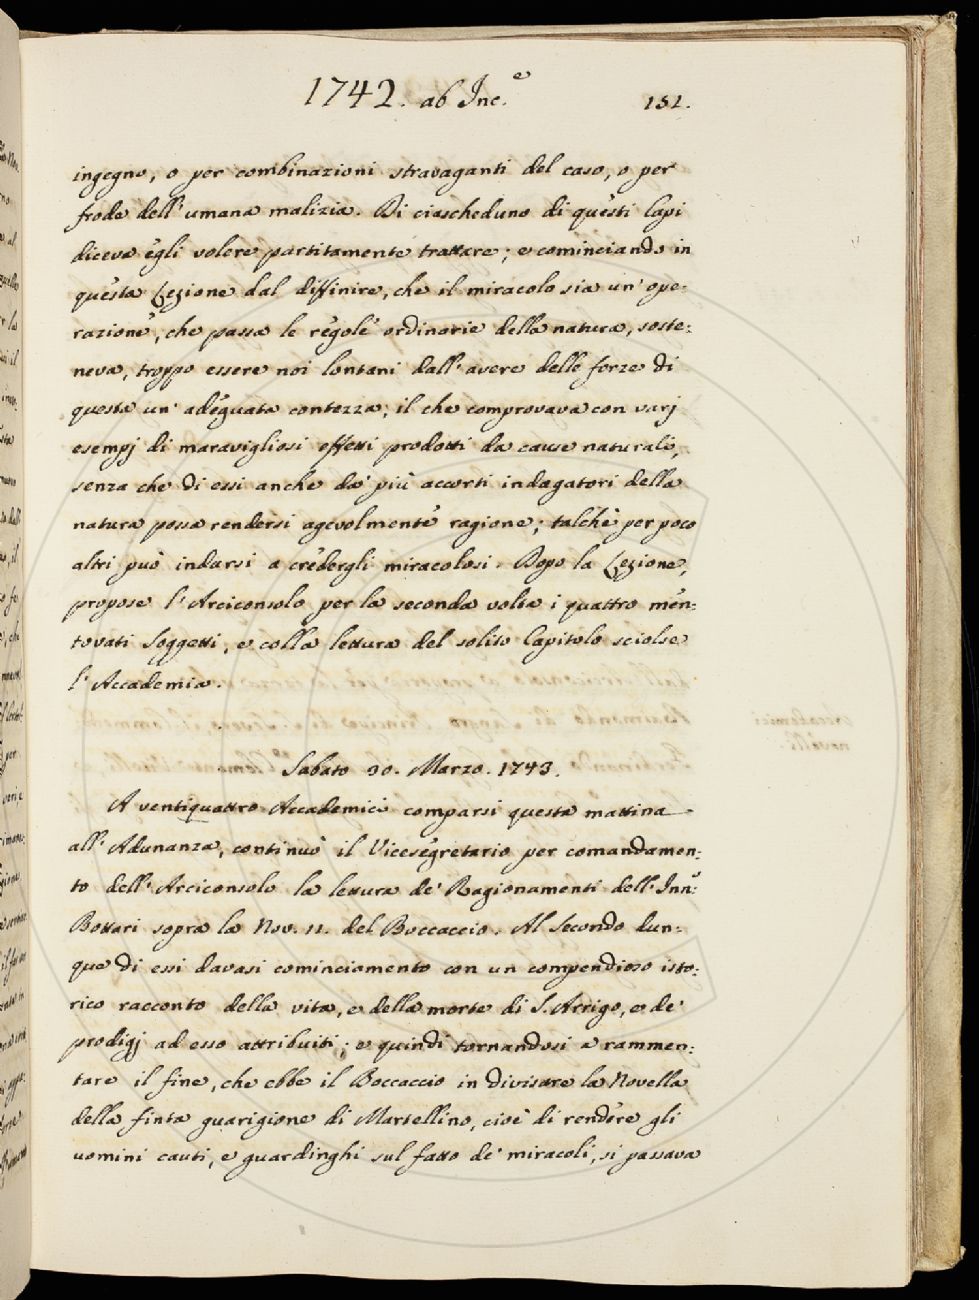 1742. ab Inc.e 151.
ingegno, o per combinazioni stravaganti del caso, o per
frode dell' umana malizia. Di ciascheduno di questi Capi
diceva egli volere partitamente trattare; e cominciando in
questa Lezione dal diffinire, che il miracolo sia un' ope-
razione, che passa le regole ordinarie della natura, soste:
neva, troppo essere noi lontani dall' avere delle forze di
questa un' adeguata contezza; il che comprovava con varj
esempj di maravigliosi effetti prodotti da cause naturali,
senza che di essi anche da' più accorti indagatori della
natura possa rendersi agevolmente ragione; talchè per poco
altri può indursi a credergli miracolosi. Dopo la Lezione,
propose l' Arciconsolo per la seconda volta i quattro men:
tovati Soggetti, e colla lettura del solito Capitolo sciolse
l' Accademia.
Sabato 30. Marzo. 1743.
A ventiquattro Accademici comparsi questa mattina
all' Adunanza, continuò il Vicesegretario per comandamen:
to dell' Arciconsolo la lettura de' Ragionamenti dell' Inn:
Bottari sopra la Nov. 11. del Boccaccio. Al Secondo dun:
que di essi davasi cominciamento con un compendioso isto:
rico racconto della vita, e della morte di S. Arrigo, e de'
prodigj ad esso attribuiti; e quindi tornandosi a rammen:
tare il fine, che ebbe il Boccaccio in divisare la Novella
della finta guarigione di Martellino, cioè di rendere gli
uomini cauti, e guardinghi sul fatto de' miracoli, si passava